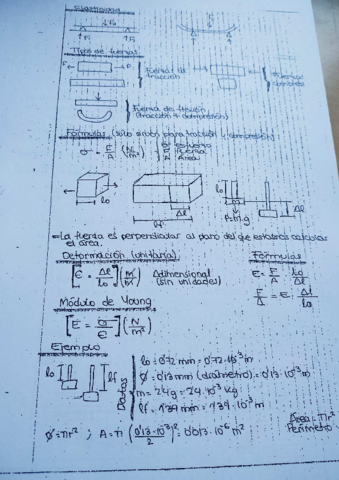 Elasticidad
Tipos de fuerzas
Fuerza de
tracción
Fuerza de
Fuerza de flexión
(tracción + compresión)
Fórmulas (sólo sirven para tracción y compresión)
σ = F/A (N/m²)
σ: esfuerzo
F: Fuerza
A: Área
lo
lf
Δl
lo
F=m·g
Δl
- La fuerza es perpendicular al plano del que estamos
el área.
Deformación (unitaria)
Fórmulas
[ε = Δl/lo] (m/m) Adimensional
(sin unidades)
E = F/A · lo/Δl
F/A = E · Δl/lo
Módulo de Young
[E = σ/ε] (N/m²)
Ejemplo
lo
lf
Datos
lo = 0'72 mm = 0'72·10⁻³ m
Ø = 0'13 mm (diámetro) = 0'13·10⁻³ m
m = 24g = 24·10⁻³ Kg
lf = 1'39 mm = 1'39·10⁻³ m
Ø = πr² ; A = π (0'13·10⁻³/2)² = 0'013·10⁻⁶ m²
Área = πr²
Perímetro